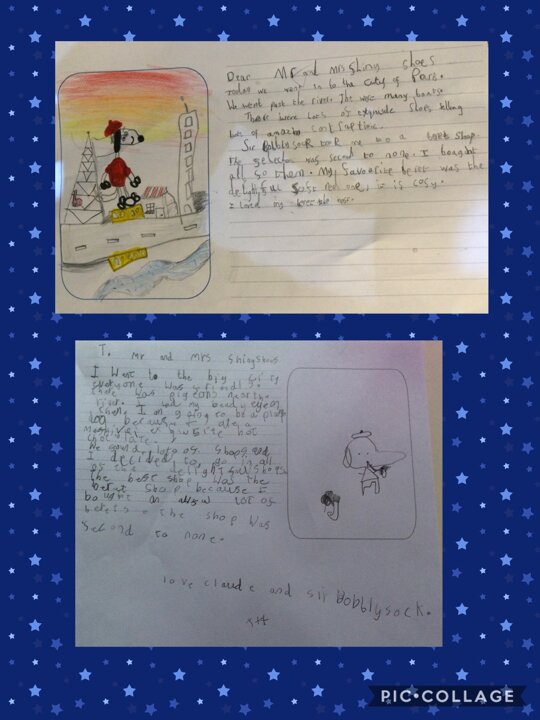 Dear Mr and Mrs Shiny shoes
today we went in to the city of Paris.
We went past the river. The wer many boats.
There were lots of exquisde shops selling
lots of
Sir Bobblysock took me to a shop.
The selection was second to none. I bought
all of them. My favourite beret was the
delightful one, it is cosy.
I loved my
To Mr and Mrs Shinyshoes
I went to the big city
everyone was friendly.
there was pigeons near the
river. my beady eye on
them. I am going to be a plump
dog because I ate a
massive exwisite hot
choclate.
We found lots of shops and
I decided to go in all
of the delightful shops
the best shop was the
beret shop because I
bought an allaw lot of
berets. the shop was
second to none.
love claude and sir Bobblysock.
PIC•COLLAGE